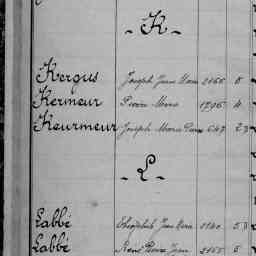 - K -
Kergus Joseph Jean Marie 2165 8
Kermeur Pierre Marie 1295 4
Keurmeur Joseph Marie Pierre 647 23
- L -
Labbé Jean Marie 1140 53
Labbé René Pierre Jean 2165 5